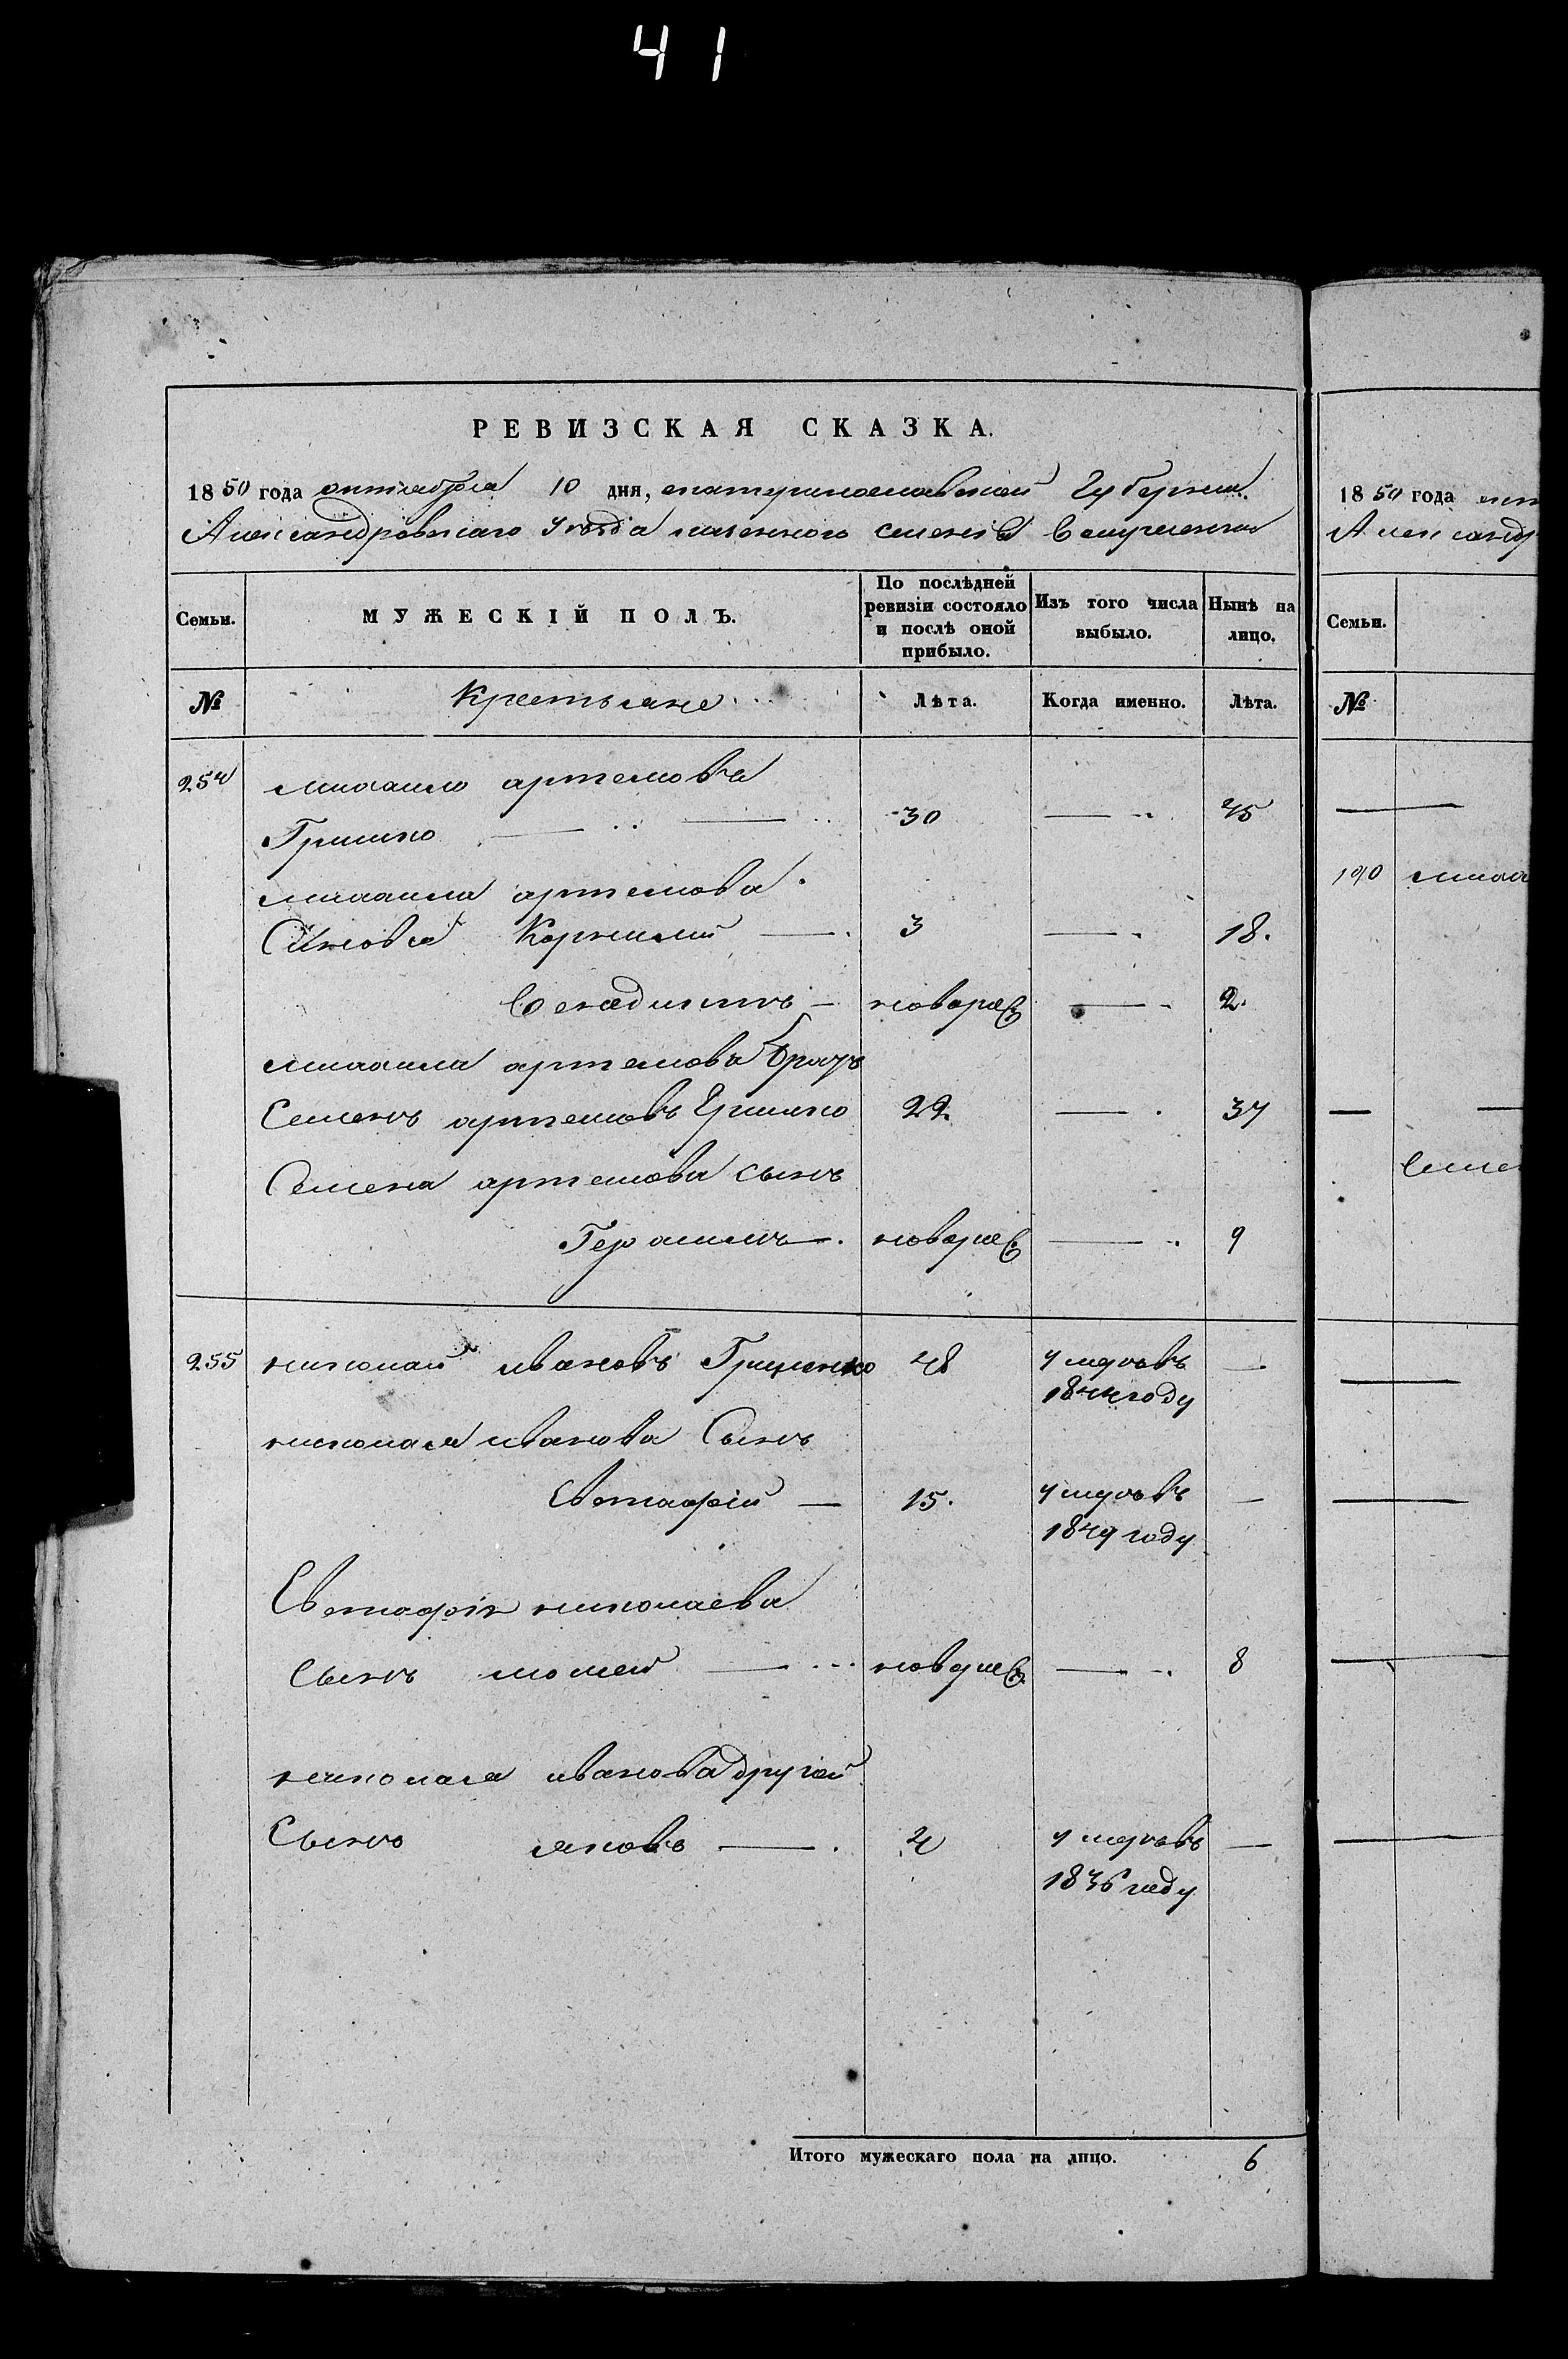 41
РЕВИЗСКАЯ СКАЗКА.
1850 года октября 10 дня, екатеринославской Губернии.
Александровскаго Уѣзда казенного селенія
Семьи. МУЖЕСКІЙ ПОЛЪ. По послѣдней ревизіи состояло и послѣ оной прибыло. Изъ того числа выбыло. Нынѣ на лицо.
№ Крестьяне Лѣта. Когда именно. Лѣта.
254 михаило артемовъ
Гришко 30 45
михаила артемова
Сыновья Корнилій 3 18.
новорож 2.
михаила артемова братъ
Семенъ артемовъ Гришко 22. 37
Семена артемова сынъ
Герасимъ новорож 9
255 николай ивановъ Гриценко 48 умеръ въ
1844 году
николая иванова Сынъ
Евстафій 15. умеръ въ
1849 году
Евстафія николаева
Сынъ мойсей новорож 8
николая иванова другой
Сынъ яковъ 4 умеръ въ
1836 году
Итого мужескаго пола на лицо. 6
1850 года
Семьи.
№
190